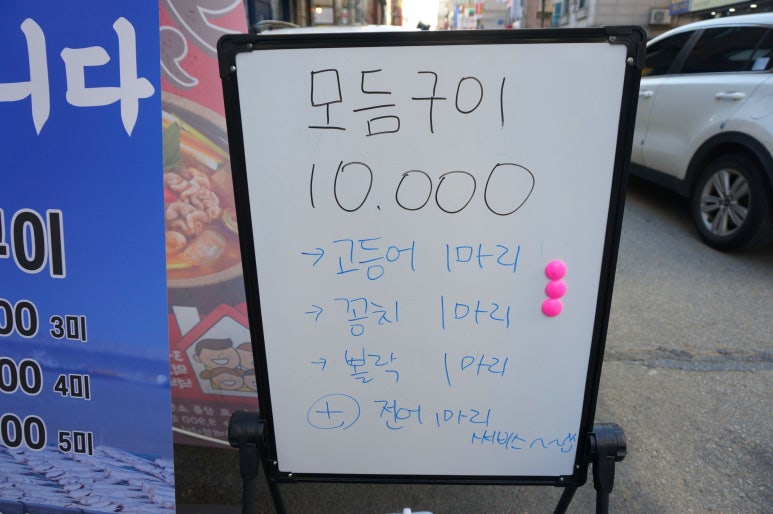 니다
구이
00 3미
00 4미
00 5미
모듬구이
10.000
→ 고등어 1마리
→ 꽁치 1마리
→ 볼락 1마리
+ 전어 1마리
서비스~~